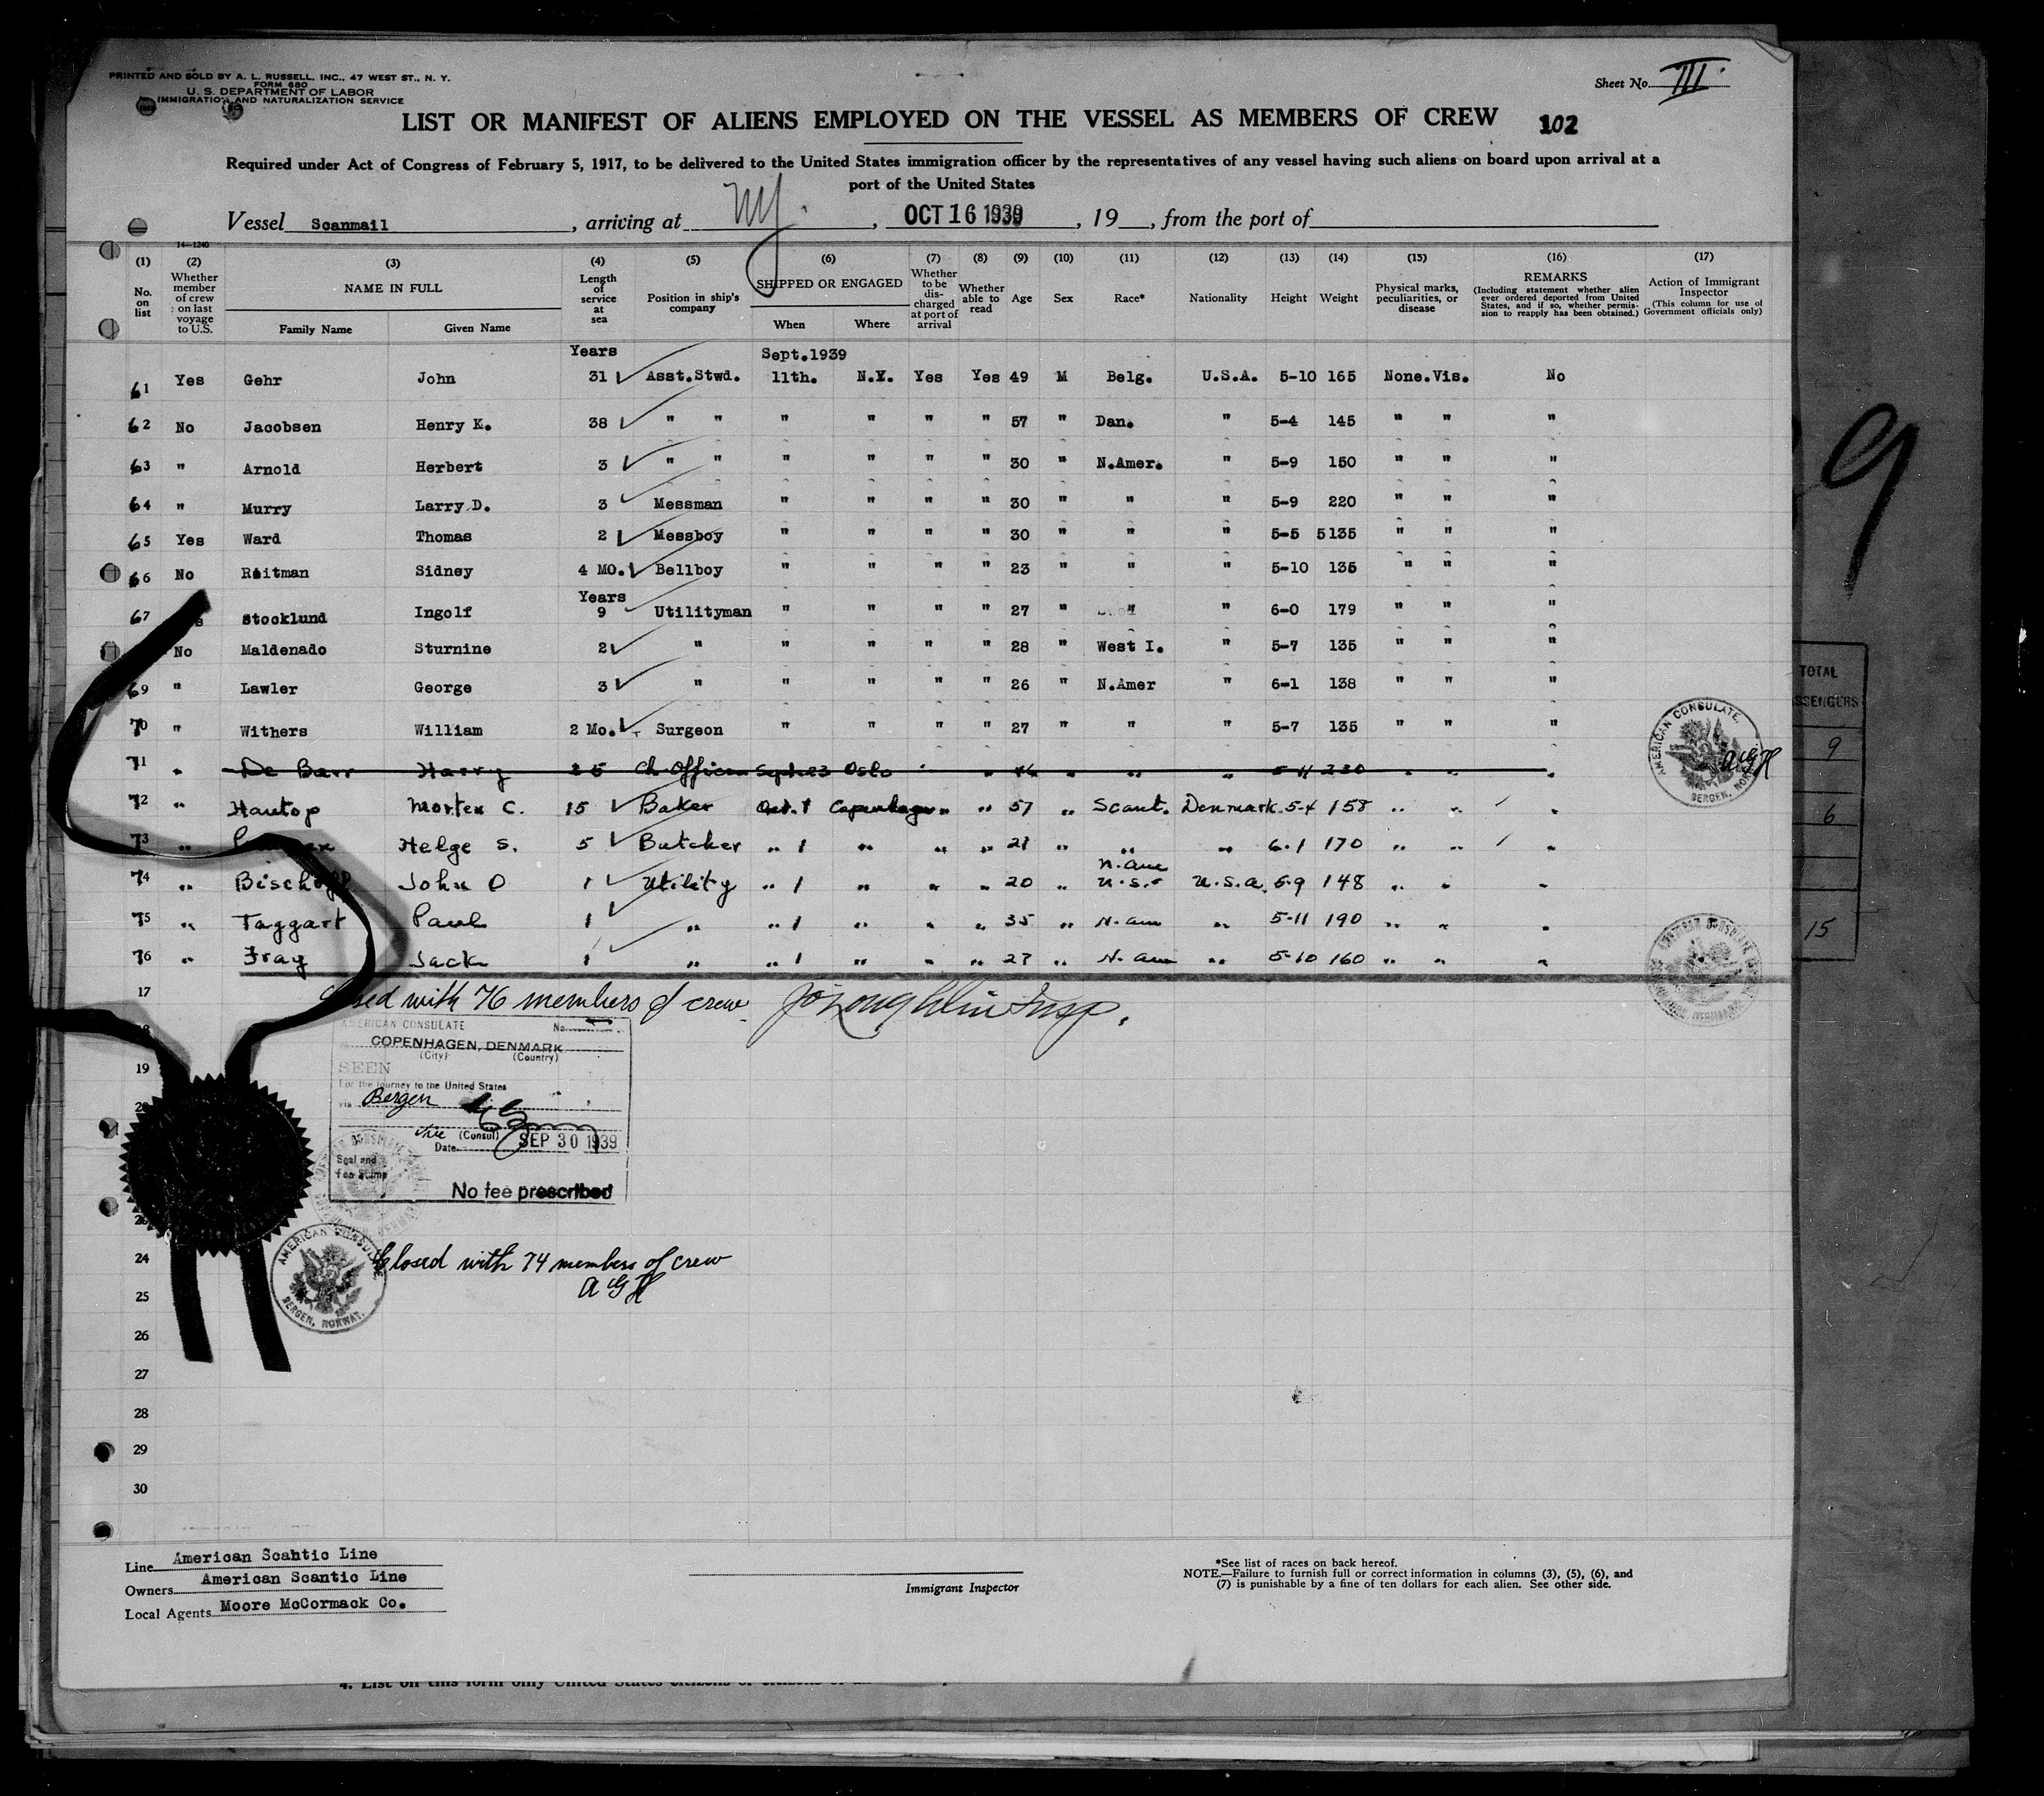 PRINTED AND SOLD BY A. L. RUSSELL, INC., 47 WEST ST., N. Y.
FORM 680
U. S. DEPARTMENT OF LABOR
IMMIGRATION AND NATURALIZATION SERVICE
Sheet No. III
LIST OR MANIFEST OF ALIENS EMPLOYED ON THE VESSEL AS MEMBERS OF CREW 102
Required under Act of Congress of February 5, 1917, to be delivered to the United States immigration officer by the representatives of any vessel having such aliens on board upon arrival at a
port of the United States
Vessel Scanmail , arriving at NY. , OCT 16 1939 , 19 , from the port of
14—1240
(1) (2) (3) (4) (5) (6) (7) (8) (9) (10) (11) (12) (13) (14) (15) (16) (17)
No. on list
Whether member of crew on last voyage to U.S.
NAME IN FULL
Family Name Given Name
Length of service at sea
Position in ship's company
SHIPPED OR ENGAGED
When Where
Whether to be discharged at port of arrival
Whether able to read
Age Sex Race* Nationality Height Weight
Physical marks, peculiarities, or disease
REMARKS
(Including statement whether alien ever ordered deported from United States, and if so, whether permission to reapply has been obtained.)
Action of Immigrant Inspector
(This column for use of Government officials only)
Years Sept.1939
61 Yes Gehr John 31 Asst.Stwd. 11th. N.Y. Yes Yes 49 M Belg. U.S.A. 5-10 165 None.Vis. No
62 No Jacobsen Henry K. 38 " " " " " " 57 " Dan. " 5-4 145 " " "
63 " Arnold Herbert 3 " " " " " " 30 " N.Amer. " 5-9 150 " " "
64 " Murry Larry D. 3 Messman " " " " 30 " " " 5-9 220 " " "
65 Yes Ward Thomas 2 Messboy " " " " 30 " " " 5-5 5135 " " "
66 No Reitman Sidney 4 MO. Bellboy " " " " 23 " " " 5-10 135 " " "
Years
67 Stocklund Ingolf 9 Utilityman " " " " 27 " " " 6-0 179 " " "
No Maldenado Sturnine 2 " " " " " 28 " West I. " 5-7 135 " " "
69 " Lawler George 3 " " " " " 26 " N.Amer " 6-1 138 " " "
70 " Withers William 2 Mo. Surgeon " " " " 27 " " " 5-7 135 " " "
71 " De Barr Harry 25 Ch. Officer Sept 23 Oslo " " 46 " " " 5-11 230 " " "
72 " Hautop Morten C. 15 Baker Oct. 1 Copenhagen " " 57 " Scant. Denmark. 5-4 158 " " "
73 " Helge S. 5 Butcher " 1 " " " 21 " " " 6-1 170 " " "
N. Am
74 " Bischoff John O 1 Utility " 1 " " " 20 " U.S. U.S.A. 5-9 148 " " "
75 " Taggart Paul 1 " " 1 " " " 35 " N. Am " 5-11 190 " " "
76 " Fray Jack 1 " " 1 " " " 27 " N. Am " 5-10 160 " " "
17
AMERICAN CONSULATE.
BERGEN, NORWAY.
AGH
Closed with 76 members of crew. Insp.
AMERICAN CONSULATE No.
COPENHAGEN, DENMARK
(City) (Country)
SEEN
For the journey to the United States
via Bergen
Vice (Consul)
Date SEP 30 1939
Seal and
Fee Stamp
No fee prescribed
19
24
25
26
27
28
29
30
AMERICAN CONSULATE
BERGEN, NORWAY.
Closed with 74 members of crew
AGH
Line American Scantic Line
Owners American Scantic Line
Local Agents Moore McCormack Co.
Immigrant Inspector
*See list of races on back hereof.
NOTE.—Failure to furnish full or correct information in columns (3), (5), (6), and
(7) is punishable by a fine of ten dollars for each alien. See other side.
4. List on this form only United States citizens or citizens of
9
TOTAL
PASSENGERS
9
6
15